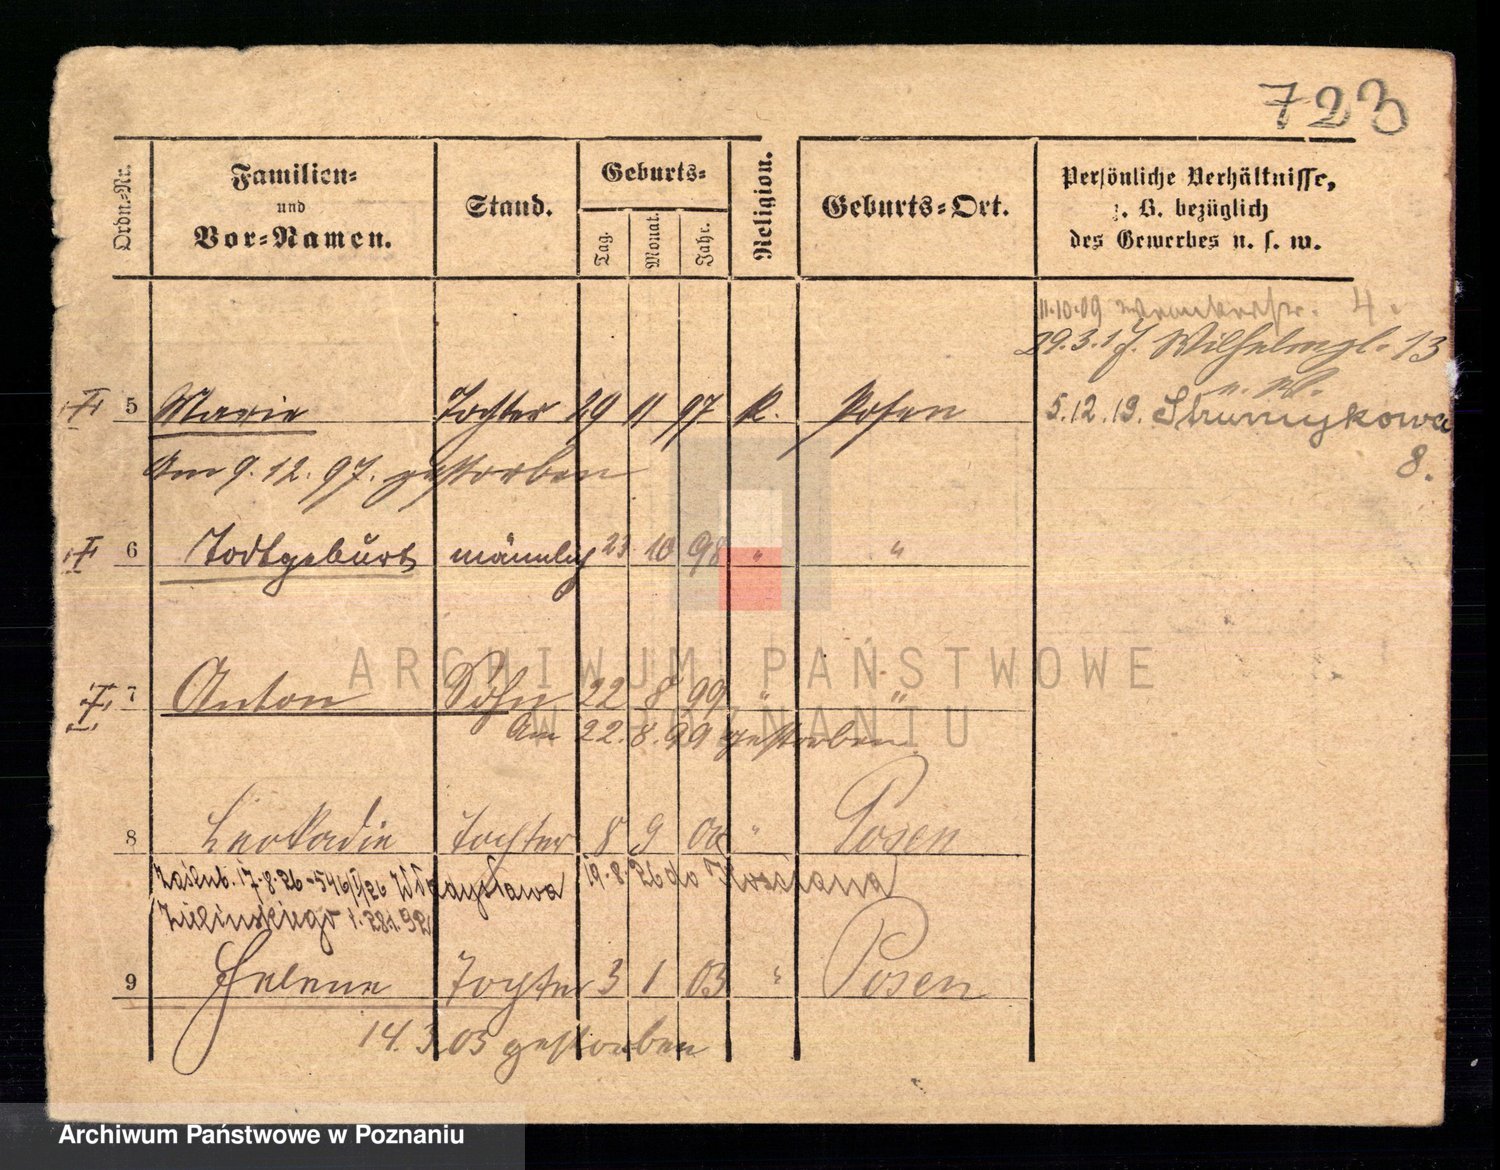 723
Ordn.-Nr.
Familien-
und
Vor-Namen.
Stand.
Geburts-
Tag.
Monat.
Jahr.
Religion.
Geburts-Ort.
Persönliche Verhältnisse,
z. B. bezüglich
des Gewerbes u. s. w.
11.10.09 Wronkerstr. 4.
29.3.17. Wilhelmpl. 13
5 Marie Tochter 29 11 97 K. Posen
5.12.19. Strumykowa
8.
Am 9.12.97. gestorben
6 Todtgeburt männlich 23 10 98 " "
7 Anton Sohn 22 8 99 " "
Am 22.8.99 gestorben
8 Leokadie Tochter 8 9 00 " Posen
Zaślub. 17.8.26 - 546/26 Władysława 19.8.26 do Kościana
Zielińskiego
9 Helene Tochter 3 1 03 " Posen
14.3.05 gestorben
ARCHIWUM PAŃSTWOWE
W POZNANIU
Archiwum Państwowe w Poznaniu